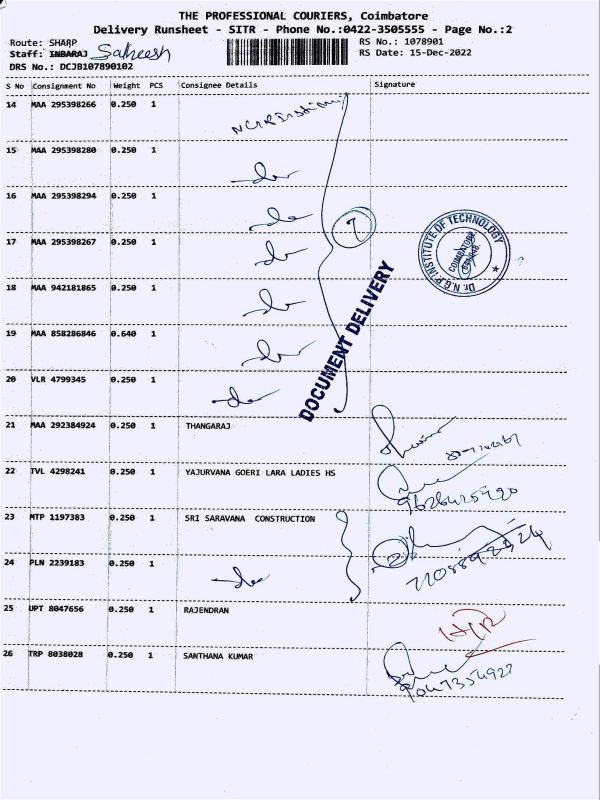 THE PROFESSIONAL COURIERS, Coimbatore
Delivery Runsheet - SITR - Phone No.:0422-3505555 - Page No.:2
Route: SHARP
RS No.: 1078901
Staff: INBARAJ Satheesh
RS Date: 15-Dec-2022
DRS No.: DCJB107890102
S No Consignment No Weight PCS Consignee Details Signature
14 MAA 295398266 0.250 1
15 MAA 295398280 0.250 1
16 MAA 295398294 0.250 1
17 MAA 295398267 0.250 1
18 MAA 942181865 0.250 1
19 MAA 858286846 0.640 1
20 VLR 4799345 0.250 1
7
Dr. N.G.P. INSTITUTE OF TECHNOLOGY
COIMBATORE
DOCUMENT DELIVERY
21 MAA 292384924 0.250 1 THANGARAJ
22 TVL 4298241 0.250 1 YAJURVANA GOERI LARA LADIES HS
23 MTP 1197383 0.250 1 SRI SARAVANA CONSTRUCTION
24 PLN 2239183 0.250 1
25 UPT 8047656 0.250 1 RAJENDRAN
26 TRP 8038028 0.250 1 SANTHANA KUMAR